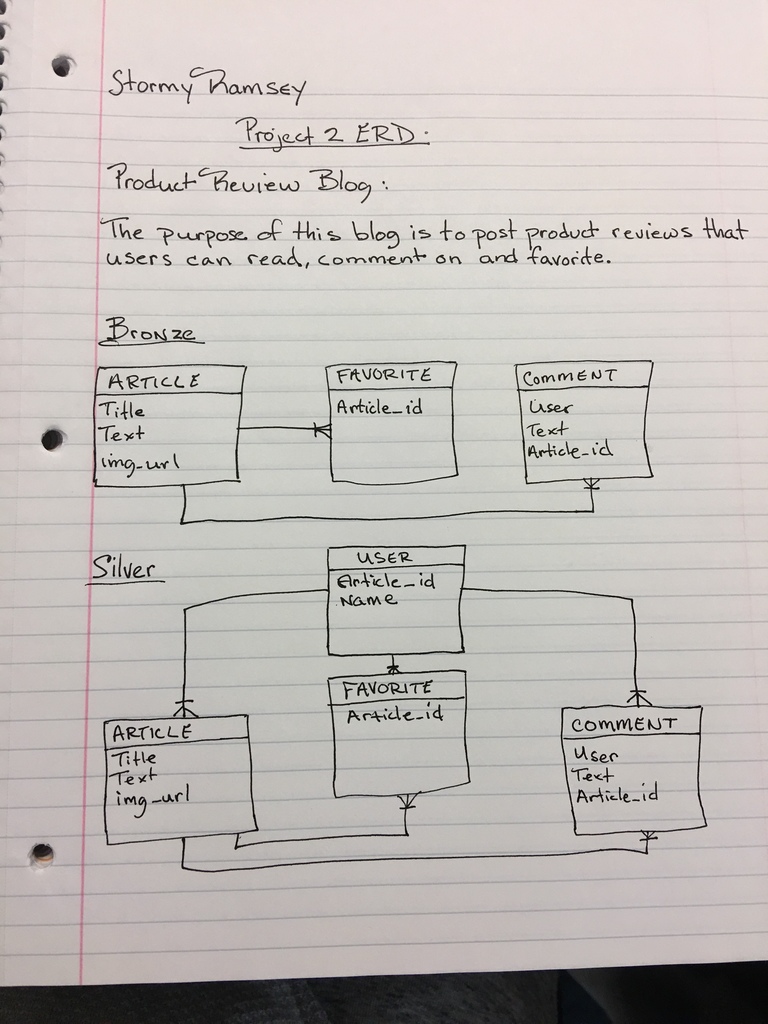 Stormy Ramsey
Project 2 ERD:
Product Review Blog:
The purpose of this blog is to post product reviews that
users can read, comment on and favorite.
Bronze
ARTICLE
Title
Text
img_url
FAVORITE
Article_id
COMMENT
User
Text
Article_id
Silver
USER
Article_id
Name
FAVORITE
Article_id
ARTICLE
Title
Text
img_url
COMMENT
User
Text
Article_id